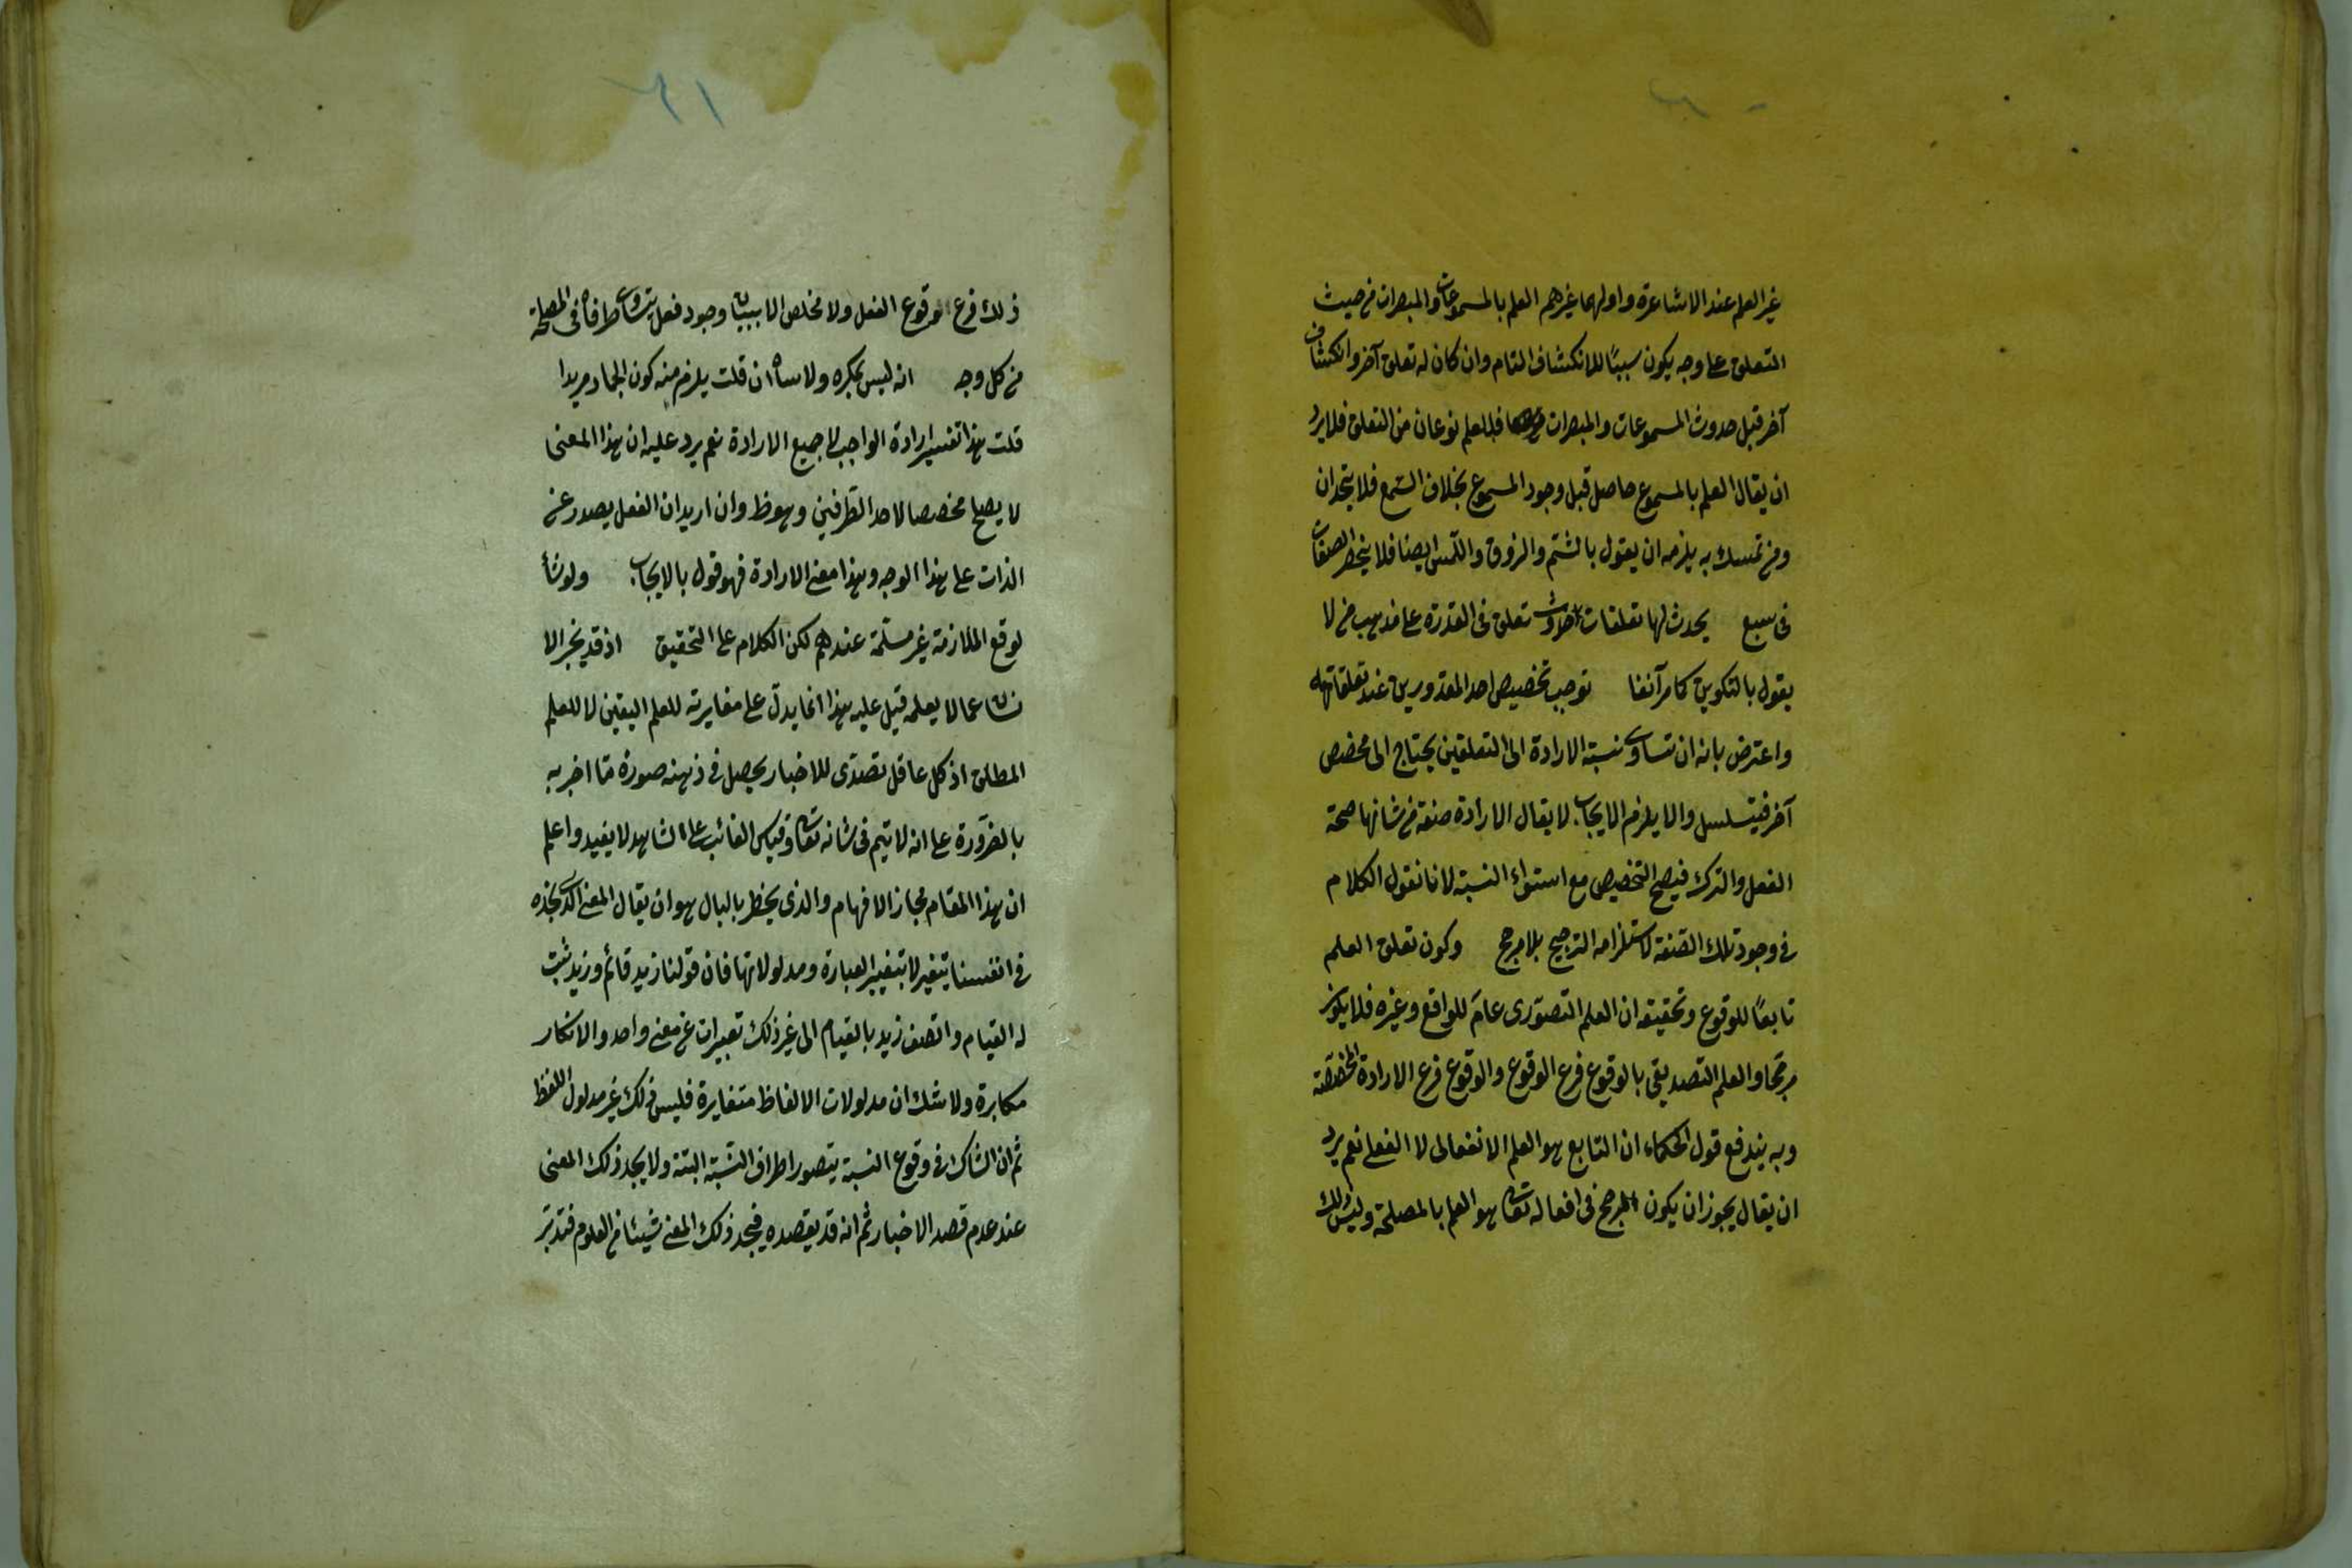 غير العلم عند الاشاعرة واولهما غيرهم العلم بالمسموعات والمبصرات من حيث
التعلق على وجه يكون سببًا للانكشاف التام وان كان له تعلق آخر وانكشاف
آخر قبل حدوث المسموعات والمبصرات فللعلم نوعان من التعلق فلا يرد
ان يقال العلم بالمسموع حاصل قبل وجود المسموع بخلاف السّمع فلا يتحدان
ومن تمسك به يلزمه ان يقول بالشّم والذوق واللّمس ايضا فلا ينحصر الصفات
فى سبع يحدث لها تعلقات حدوث تعلق فى القدرة على مذهب من لا
يقول بالتكوين كما مر آنفا توجب تخصيص احد المقدورين عند تعلقاتها
واعترض بانه ان تساوى نسبة الارادة الى التعلقين يحتاج الى مخصص
آخر فيتسلسل والا يلزم الايجاب لا يقال الارادة صفة من شانها صحة
الفعل والترك فيصح التخصيص مع استواء النسبة لانا نقول الكلام
فى وجود تلك الصّفة لاستلزامه الترجيح بلا مرجح وكون تعلق العلم
تابعًا للوقوع وتحقيقه ان العلم التصوّرى عامّ للواقع وغيره فلا يكون
مرجّحا والعلم التصديقى بالوقوع فرع الوقوع والوقوع فرع الارادة المخصّصة
وبه يندفع قول الحكماء ان التابع هو العلم الانفعالى لا الفعلى نعم يرد
ان يقال يجوز ان يكون المرجح فى افعاله تعالى هو العلم بالمصلحة وليس ذلك
٢١
ذلك فرع وقوع الفعل ولا مخلص الا ببيان وجود فعل يتساوى طرفاه فى المصلحة
من كل وجه انه ليس بمكره ولا ساه ان قلت يلزم منه كون الجماد مريدا
قلت هذا تفسير ارادة الواجب لا جميع الارادة نعم يرد عليه ان هذا المعنى
لا يصلح مخصصا لاحد الطّرفين وهو ظ وان اريد ان الفعل يصدر عن
الذات على هذا الوجه وهذا معنى الارادة فهو قول بالايجاب ولو شأ
لوقع الملازمة غير مسلّمة عندهم لكن الكلام على التحقيق اذ قد يخبر الا
نسان عما لا يعلمه قيل عليه هذا انما يدلّ على مغايرته للعلم اليقين لا للعلم
المطلق اذ كل عاقل تصدّى للاخبار يحصل فى ذهنه صورة ما اخبر به
بالضّرورة على انه لا يتم فى شانه تعالى وقياس الغائب على الشاهد لا يفيد واعلم
ان هذا المقام محاز الافهام والذى يخطر بالبال هو ان يقال المعنى الذى نجده
فى انفسنا يتغير لا بتغيير العبارة ومدلولاتها فان قولنا زيد قائم وزيد ثبت
له القيام واتصف زيد بالقيام الى غير ذلك تعبيرات عن معنى واحد والانكار
مكابرة ولا شك ان مدلولات الالفاظ متغايرة فليس ذلك غير مدلول اللفظ
ثم ان الشاك فى وقوع النسبة يتصور اطراف النّسبة البتة ولا يجد ذلك المعنى
عند عدم قصد الاخبار ثم انه قد يقصده فيجد ذلك المعنى شيئا من العلوم فتدبّر